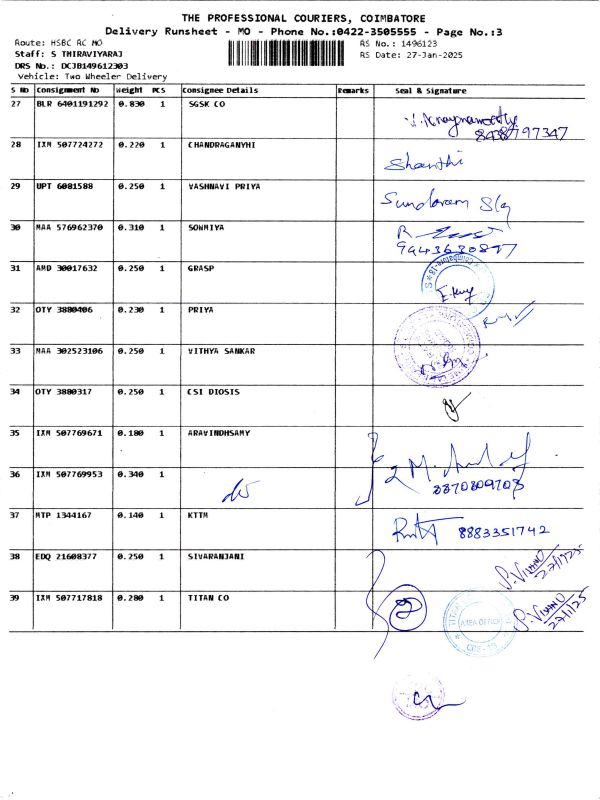 THE PROFESSIONAL COURIERS, COIMBATORE
Delivery Runsheet - MO - Phone No.:0422-3505555 - Page No.:3
Route: HSBC RC MO
RS No.: 1496123
Staff: S THIRAVIYARAJ
RS Date: 27-Jan-2025
DRS No.: DCJB149612303
Vehicle: Two Wheeler Delivery
S No Consignment No Weight PCS Consignee Details Remarks Seal & Signature
27 BLR 6401191292 0.830 1 SGSK CO
8438797347
28 IXM 507724272 0.220 1 CHANDRAGANYHI
Shanthi
29 UPT 6081588 0.250 1 VASHNAVI PRIYA
Sundaram
30 MAA 576962370 0.310 1 SOWMIYA
9443630877
31 AMD 30017632 0.250 1 GRASP
32 OTY 3880406 0.230 1 PRIYA
33 MAA 302523106 0.250 1 VITHYA SANKAR
34 OTY 3880317 0.250 1 CSI DIOSIS
35 IXM 507769671 0.180 1 ARAVINDHSAMY
36 IXM 507769953 0.340 1
8870809708
37 MTP 1344167 0.140 1 KTTM
8883351742
38 EDQ 21608377 0.250 1 SIVARANJANI
27/1/25
39 IXM 507717818 0.280 1 TITAN CO
AREA OFFICE
27/1/25